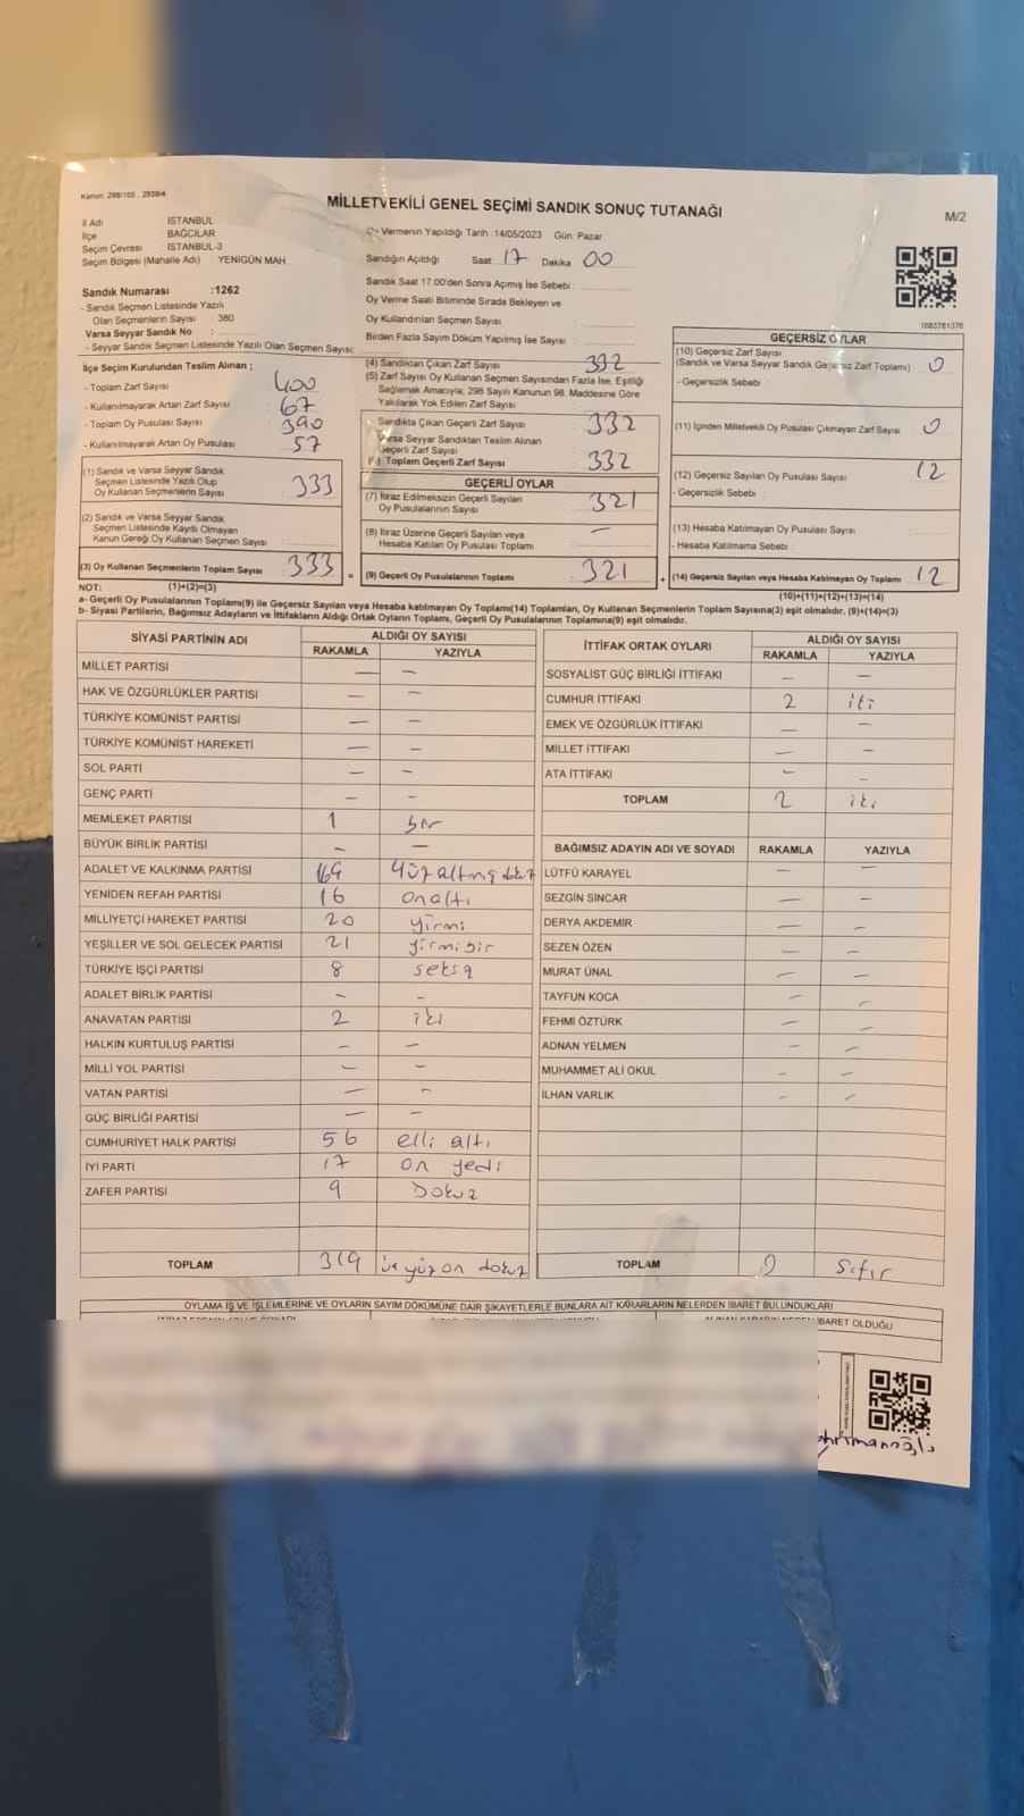 Kanun: 298/105 , 2839/4
MİLLETVEKİLİ GENEL SEÇİMİ SANDIK SONUÇ TUTANAĞI
M/2
İl Adı İSTANBUL
İlçe BAĞCILAR
Seçim Çevresi İSTANBUL-3
Seçim Bölgesi (Mahalle Adı) YENİGÜN MAH.
Oy Vermenin Yapıldığı Tarih :14/05/2023 Gün: Pazar
Sandığın Açıldığı Saat 17 Dakika 00
Sandık Saat 17.00'den Sonra Açılmış İse Sebebi :
Oy Verme Saati Bitiminde Sırada Bekleyen ve
Oy Kullandırılan Seçmen Sayısı
Birden Fazla Sayım Döküm Yapılmış İse Sayısı
Sandık Numarası :1262
- Sandık Seçmen Listesinde Yazılı
Olan Seçmenlerin Sayısı : 380
Varsa Seyyar Sandık No :
- Seyyar Sandık Seçmen Listesinde Yazılı Olan Seçmen Sayısı:
İlçe Seçim Kurulundan Teslim Alınan ;
- Toplam Zarf Sayısı 400
- Kullanılmayarak Artan Zarf Sayısı 67
- Toplam Oy Pusulası Sayısı 390
- Kullanılmayarak Artan Oy Pusulası 57
(1) Sandık ve Varsa Seyyar Sandık
Seçmen Listesinde Yazılı Olup
Oy Kullanan Seçmenlerin Sayısı 333
(2) Sandık ve Varsa Seyyar Sandık
Seçmen Listesinde Kayıtlı Olmayan
Kanun Gereği Oy Kullanan Seçmen Sayısı :
(3) Oy Kullanan Seçmenlerin Toplam Sayısı 333 =
(4) Sandıktan Çıkan Zarf Sayısı 332
(5) Zarf Sayısı Oy Kullanan Seçmen Sayısından Fazla İse, Eşitliği
Sağlamak Amacıyla, 298 Sayılı Kanunun 98. Maddesine Göre
Yakılarak Yok Edilen Zarf Sayısı
Sandıkta Çıkan Geçerli Zarf Sayısı 332
Varsa Seyyar Sandıktan Teslim Alınan
Geçerli Zarf Sayısı
Toplam Geçerli Zarf Sayısı 332
GEÇERLİ OYLAR
(7) İtiraz Edilmeksizin Geçerli Sayılan
Oy Pusulalarının Sayısı 321
(8) İtiraz Üzerine Geçerli Sayılan veya
Hesaba Katılan Oy Pusulası Toplamı —
(9) Geçerli Oy Pusulalarının Toplamı 321 +
1683781376
GEÇERSİZ OYLAR
(10) Geçersiz Zarf Sayısı
(Sandık ve Varsa Seyyar Sandık Geçersiz Zarf Toplamı) 0
- Geçersizlik Sebebi
(11) İçinden Milletvekili Oy Pusulası Çıkmayan Zarf Sayısı 0
(12) Geçersiz Sayılan Oy Pusulası Sayısı 12
- Geçersizlik Sebebi
(13) Hesaba Katılmayan Oy Pusulası Sayısı
- Hesaba Katılmama Sebebi
(14) Geçersiz Sayılan veya Hesaba Katılmayan Oy Toplamı 12
NOT: (1)+(2)=(3)
(10)+(11)+(12)+(13)=(14)
a- Geçerli Oy Pusulalarının Toplamı(9) ile Geçersiz Sayılan veya Hesaba katılmayan Oy Toplamı(14) Toplamları, Oy Kullanan Seçmenlerin Toplam Sayısına(3) eşit olmalıdır. (9)+(14)=(3)
b- Siyasi Partilerin, Bağımsız Adayların ve İttifakların Aldığı Ortak Oyların Toplamı, Geçerli Oy Pusulalarının Toplamına(9) eşit olmalıdır.
SİYASİ PARTİNİN ADI ALDIĞI OY SAYISI
RAKAMLA YAZIYLA
MİLLET PARTİSİ — —
HAK VE ÖZGÜRLÜKLER PARTİSİ — —
TÜRKİYE KOMÜNİST PARTİSİ — —
TÜRKİYE KOMÜNİST HAREKETİ — —
SOL PARTİ — —
GENÇ PARTİ — —
MEMLEKET PARTİSİ 1 bir
BÜYÜK BİRLİK PARTİSİ — —
ADALET VE KALKINMA PARTİSİ 169 Yüzaltmışdokuz
YENİDEN REFAH PARTİSİ 16 onaltı
MİLLİYETÇİ HAREKET PARTİSİ 20 yirmi
YEŞİLLER VE SOL GELECEK PARTİSİ 21 yirmibir
TÜRKİYE İŞÇİ PARTİSİ 8 sekiz
ADALET BİRLİK PARTİSİ — —
ANAVATAN PARTİSİ 2 iki
HALKIN KURTULUŞ PARTİSİ — —
MİLLİ YOL PARTİSİ — —
VATAN PARTİSİ — —
GÜÇ BİRLİĞİ PARTİSİ — —
CUMHURİYET HALK PARTİSİ 56 elli altı
İYİ PARTİ 17 on yedi
ZAFER PARTİSİ 9 Dokuz
TOPLAM 319 üçyüz on dokuz
İTTİFAK ORTAK OYLARI ALDIĞI OY SAYISI
RAKAMLA YAZIYLA
SOSYALİST GÜÇ BİRLİĞİ İTTİFAKI — —
CUMHUR İTTİFAKI 2 iki
EMEK VE ÖZGÜRLÜK İTTİFAKI — —
MİLLET İTTİFAKI — —
ATA İTTİFAKI — —
TOPLAM 2 iki
BAĞIMSIZ ADAYIN ADI VE SOYADI RAKAMLA YAZIYLA
LÜTFÜ KARAYEL — —
SEZGİN SİNCAR — —
DERYA AKDEMİR — —
SEZEN ÖZEN — —
MURAT ÜNAL — —
TAYFUN KOCA — —
FEHMİ ÖZTÜRK — —
ADNAN YELMEN — —
MUHAMMET ALİ OKUL — —
İLHAN VARLIK — —
TOPLAM 0 Sıfır
OYLAMA İŞ VE İŞLEMLERİNE VE OYLARIN SAYIM DÖKÜMÜNE DAİR ŞİKAYETLERLE BUNLARA AİT KARARLARIN NELERDEN İBARET BULUNDUKLARI
İBARET OLDUĞU